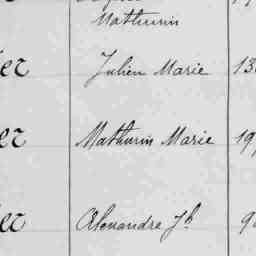 Mathurin
er Julien Marie 13
er Mathurin Marie 19
er Alexandre Jh 9